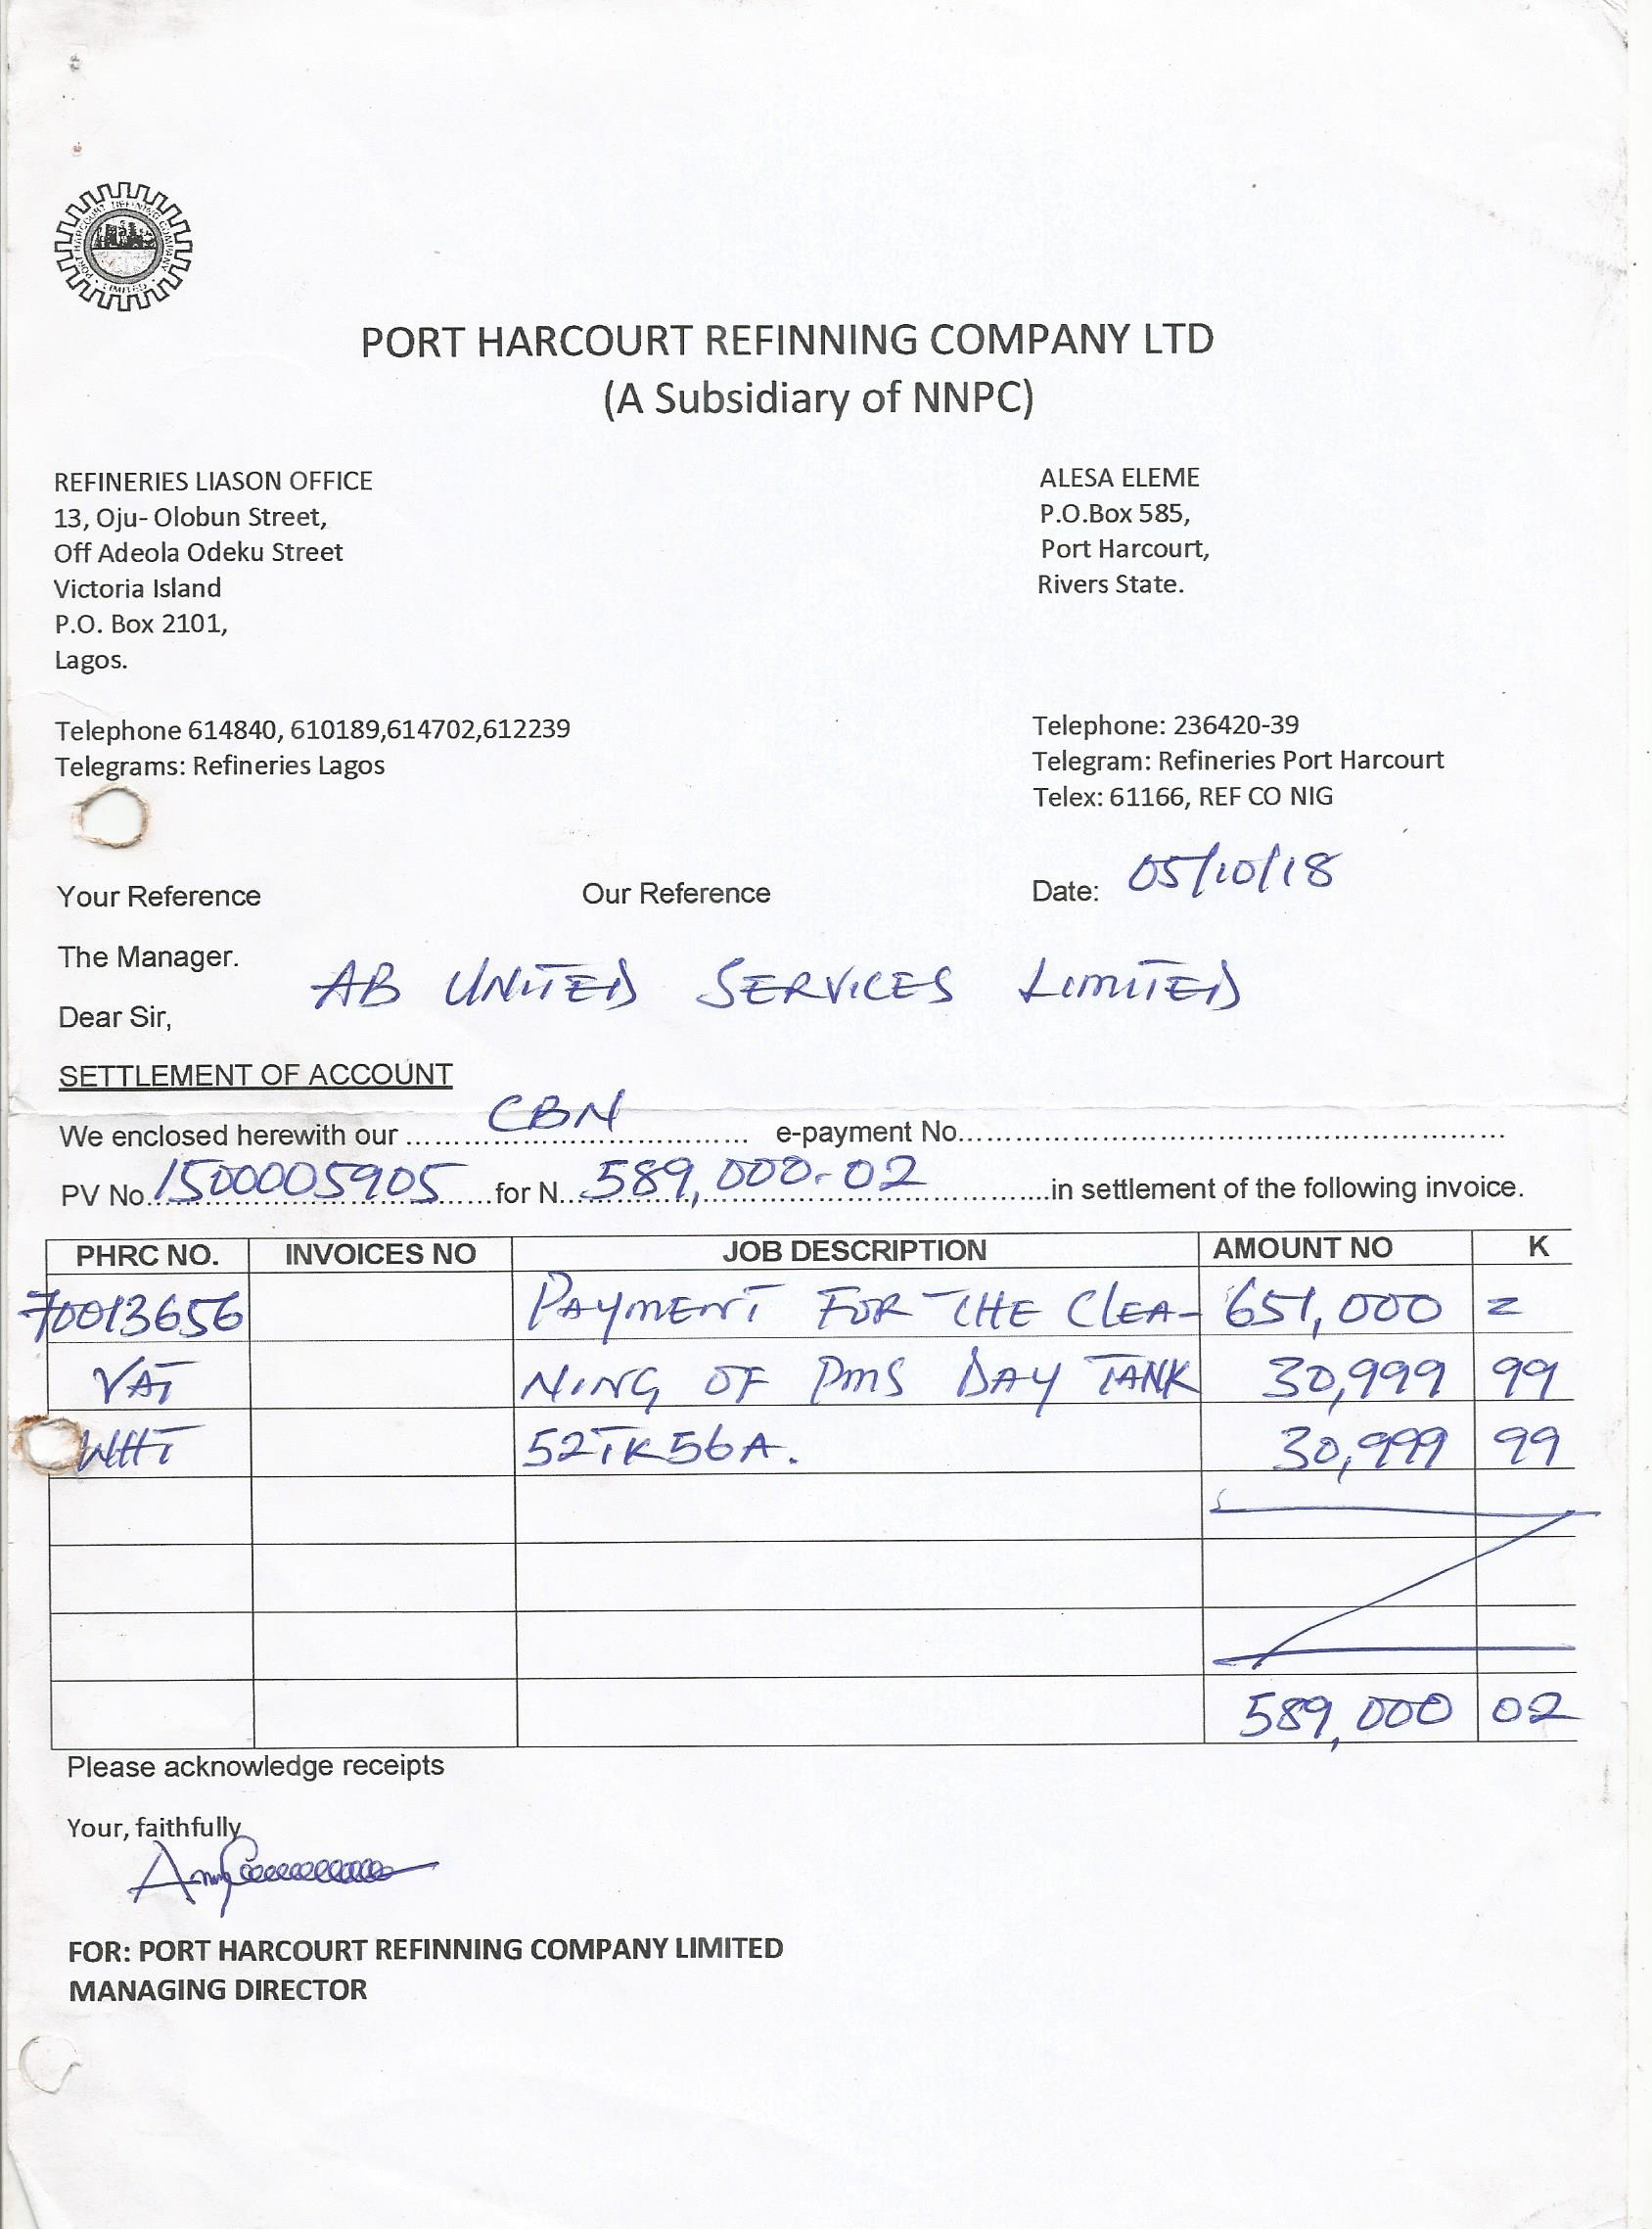 PORT HARCOURT REFINING COMPANY
LIMITED
PORT HARCOURT REFINNING COMPANY LTD
(A Subsidiary of NNPC)
REFINERIES LIASON OFFICE
13, Oju- Olobun Street,
Off Adeola Odeku Street
Victoria Island
P.O. Box 2101,
Lagos.
ALESA ELEME
P.O.Box 585,
Port Harcourt,
Rivers State.
Telephone 614840, 610189,614702,612239
Telegrams: Refineries Lagos
Telephone: 236420-39
Telegram: Refineries Port Harcourt
Telex: 61166, REF CO NIG
Your Reference Our Reference Date: 05/10/18
The Manager.
AB UNITED SERVICES LIMITED
Dear Sir,
SETTLEMENT OF ACCOUNT
We enclosed herewith our ... CBN ... e-payment No...
PV No. 1500005905 ... for N... 589,000-02 ... in settlement of the following invoice.
PHRC NO. INVOICES NO JOB DESCRIPTION AMOUNT NO K
70013656 PAYMENT FOR THE CLEA- 651,000 =
VAT NING OF PMS DAY TANK 30,999 99
WHT 52TK56A. 30,999 99
589,000 02
Please acknowledge receipts
Your, faithfully
FOR: PORT HARCOURT REFINNING COMPANY LIMITED
MANAGING DIRECTOR